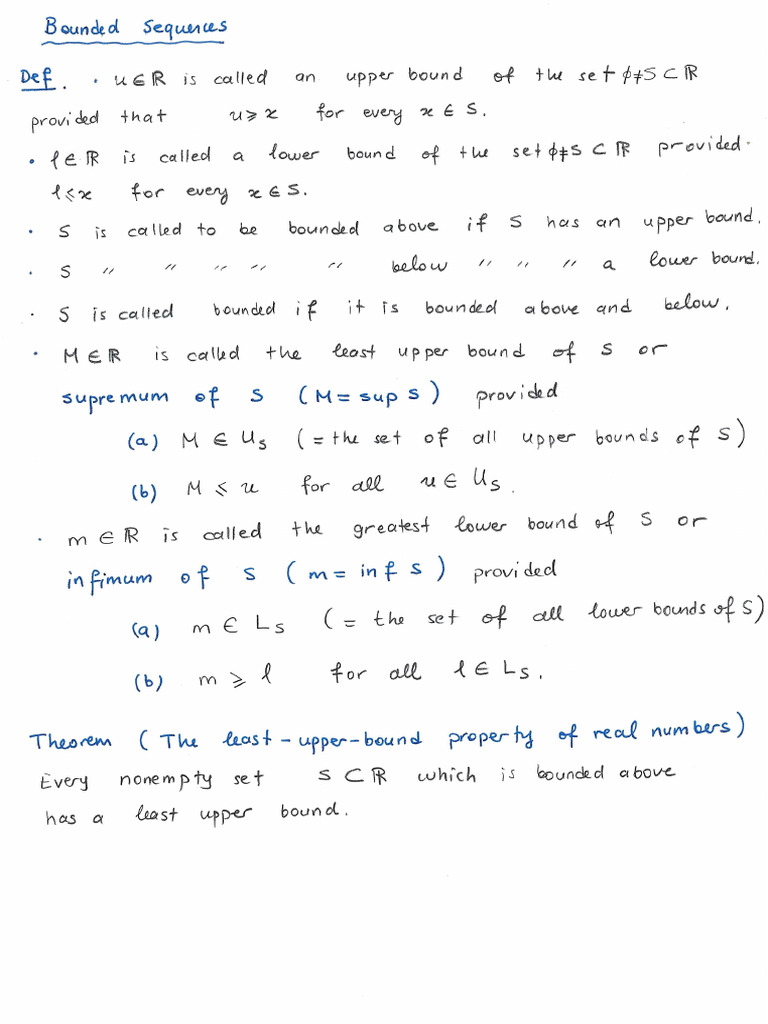 Bounded Sequences
Def. · u ∈ ℝ is called an upper bound of the set ϕ≠S ⊂ ℝ
provided that u ≥ x for every x ∈ S.
· l ∈ ℝ is called a lower bound of the set ϕ≠S ⊂ ℝ provided.
l ≤ x for every x ∈ S.
· S is called to be bounded above if S has an upper bound.
· S " " " " " below " " " a lower bound.
· S is called bounded if it is bounded above and below.
· M ∈ ℝ is called the least upper bound of S or
supremum of S (M = sup S) provided
(a) M ∈ U_S (= the set of all upper bounds of S)
(b) M ≤ u for all u ∈ U_S.
· m ∈ ℝ is called the greatest lower bound of S or
infimum of S (m = inf S) provided
(a) m ∈ L_S (= the set of all lower bounds of S)
(b) m ≥ l for all l ∈ L_S.
Theorem (The least-upper-bound property of real numbers)
Every nonempty set S ⊂ ℝ which is bounded above
has a least upper bound.